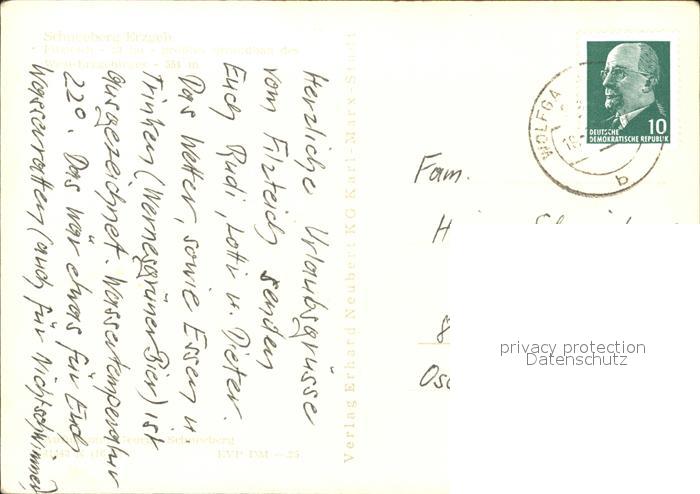 Schneeberg Erzgeb.
Filzteich - 23 ha - größtes Strandbad des
West-Erzgebirges - 551 m
Herzliche Urlaubsgrüsse
vom Filzteich senden
Euch Rudi, Lotti u. Dieter.
Das Wetter, sowie Essen u
Trinken (Wernesgrüner Bier) ist
ausgezeichnet. Wassertemperatur
22°. Das wär etwas für Euch
Wasserratten (auch für Nichtschwimmer)
Schneeberg
EVP DM —.25
Verlag Erhard Neubert KG Karl-Marx-Stadt
WOLFGA
b
10
DEUTSCHE
DEMOKRATISCHE REPUBLIK
Fam.
H
8
Os
privacy protection
Datenschutz